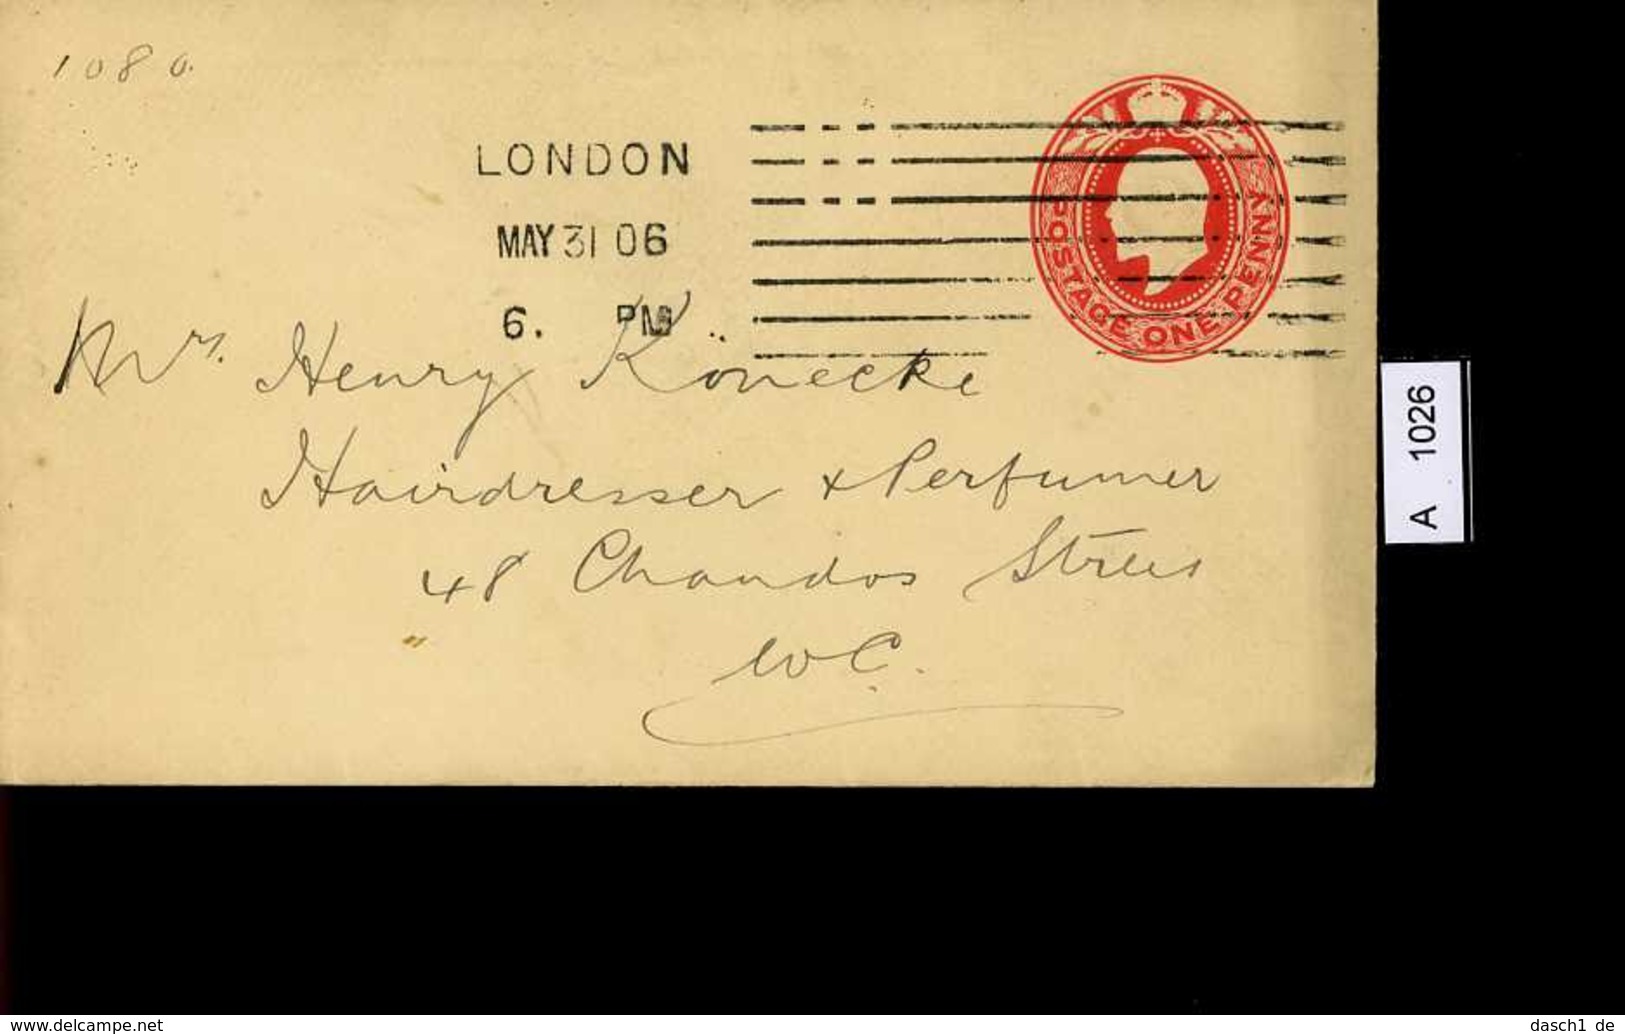 1080.
LONDON
MAY 31 06
6. PM
POSTAGE ONE PENNY
Mr. Henry Könecke
Hairdresser + Perfumer
48 Chandos Street
W C.
A 1026
www.delcampe.net
dasch1_de